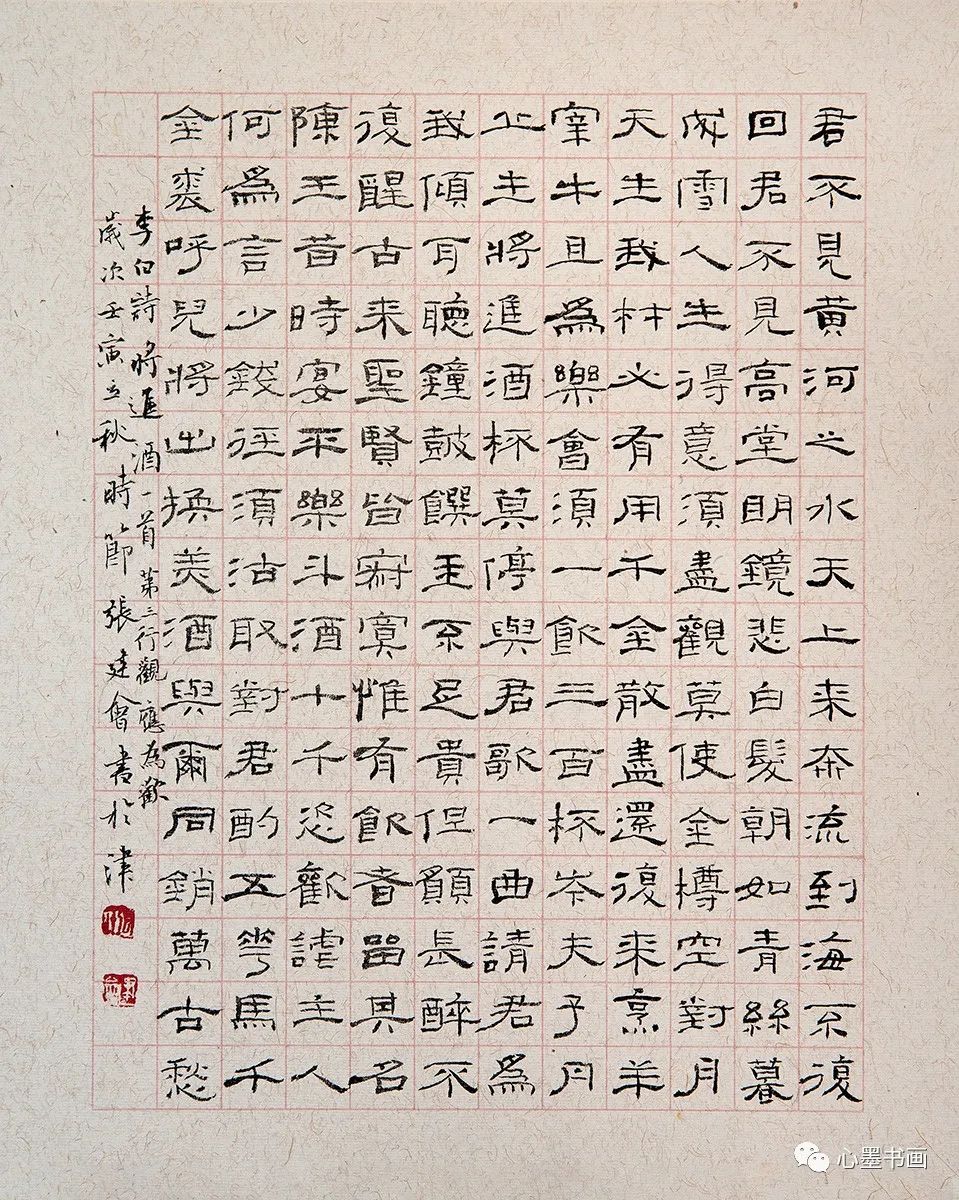 君不見黃河之水天上来奔流到海不復
回君不見高堂明鏡悲白髮朝如青絲暮
成雪人生得意須盡觀莫使金樽空對月
天生我材必有用千金散盡還復来烹羊
宰牛且為樂會須一飲三百杯岑夫子丹
丘生將進酒杯莫停與君歌一曲請君為
我傾耳聽鐘鼓饌玉不足貴但願長醉不
復醒古来聖賢皆寂寞惟有飲者留其名
陳王昔時宴平樂斗酒十千恣歡謔主人
何為言少錢徑須沽取對君酌五花馬千
金裘呼兒將出換美酒與爾同銷萬古愁
李白詩將進酒一首第三行觀應為歡
歲次壬寅立秋時節張建會書於津
心墨书画